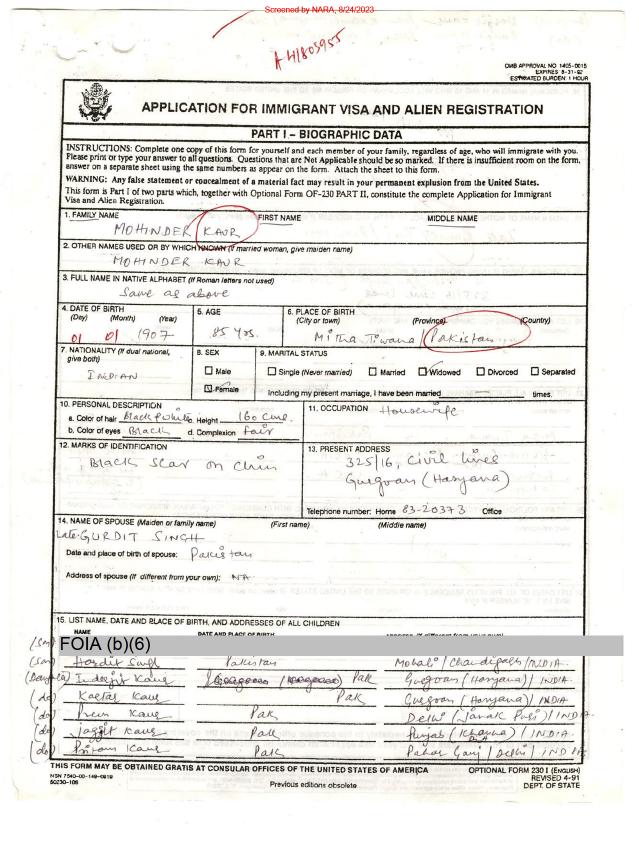 Screened by NARA, 8/24/2023
A41803955
OMB APPROVAL NO 1405-0015
EXPIRES 8-31-92
ESTIMATED BURDEN: 1 HOUR
APPLICATION FOR IMMIGRANT VISA AND ALIEN REGISTRATION
PART I – BIOGRAPHIC DATA
INSTRUCTIONS: Complete one copy of this form for yourself and each member of your family, regardless of age, who will immigrate with you.
Please print or type your answer to all questions. Questions that are Not Applicable should be so marked. If there is insufficient room on the form,
answer on a separate sheet using the same numbers as appear on the form. Attach the sheet to this form.
WARNING: Any false statement or concealment of a material fact may result in your permanent explusion from the United States.
This form is Part I of two parts which, together with Optional Form OF-230 PART II, constitute the complete Application for Immigrant
Visa and Alien Registration.
1. FAMILY NAME FIRST NAME MIDDLE NAME
MOHINDER KAUR
2. OTHER NAMES USED OR BY WHICH KNOWN (If married woman, give maiden name)
MOHINDER KAUR
3. FULL NAME IN NATIVE ALPHABET (If Roman letters not used)
Same as above
4. DATE OF BIRTH 5. AGE 6. PLACE OF BIRTH
(Day) (Month) (Year) (City or town) (Province) (Country)
01 01 1907 85 yrs. Mitha Tiwana / Pakistan
7. NATIONALITY (If dual national, give both) 8. SEX 9. MARITAL STATUS
INDIAN Male Single (Never married) Married Widowed Divorced Separated
Female Including my present marriage, I have been married times.
10. PERSONAL DESCRIPTION 11. OCCUPATION Housewife
a. Color of hair Black & white c. Height 160 cms.
b. Color of eyes Black d. Complexion fair
12. MARKS OF IDENTIFICATION 13. PRESENT ADDRESS
Black Scar on Chin 325/16, Civil lines
Gurgoan (Haryana)
Telephone number: Home 83-20373 Office
14. NAME OF SPOUSE (Maiden or family name) (First name) (Middle name)
Late. GURDIT SINGH
Date and place of birth of spouse: Pakistan
Address of spouse (If different from your own): NA
15. LIST NAME, DATE AND PLACE OF BIRTH, AND ADDRESSES OF ALL CHILDREN
NAME DATE AND PLACE OF BIRTH
(Son) FOIA (b)(6)
(son) Hardit Singh Pakistan Mohali / Chandigarh / INDIA.
Inderjit Kaur Pak Gurgoan (Haryana) / INDIA
(do) Kartar Kaur Pak Gurgoan (Haryana) / INDIA
(do) Prem Kaur Pak Delhi (Janak Puri) / INDIA.
(do) Jagjit Kaur Pak Punjab (Khanna) / INDIA.
(do) Pritam Kaur Pak Pahar Ganj / Delhi / INDIA
THIS FORM MAY BE OBTAINED GRATIS AT CONSULAR OFFICES OF THE UNITED STATES OF AMERICA
OPTIONAL FORM 230 I (ENGLISH)
NSN 7540-00-149-0919
REVISED 4-91
50230-106
Previous editions obsolete
DEPT. OF STATE